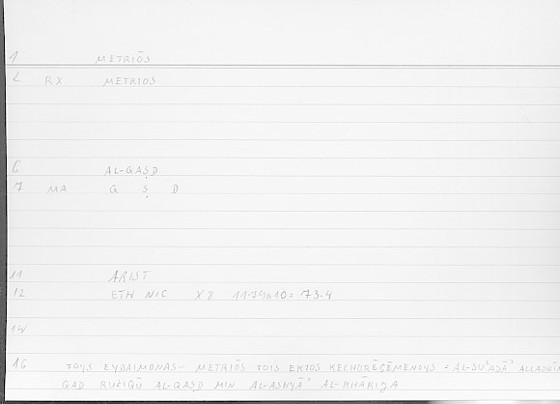 1 METRIŌS
2 RX METRIOS
6 AL-QAṢD
7 MA Q Ṣ D
11 ARIST
12 ETH NIC X 8 1179A10 = 73.4
14
16 TOYS EYDAIMONAS METRIŌS TOIS EKTOS KECHORĒGĒMENOYS = AL-SUʿADĀʾ ALLADĪN
QAD RUZIQŪ AL-QAṢD MIN AL-ASHYĀʾ AL-KHĀRIJA